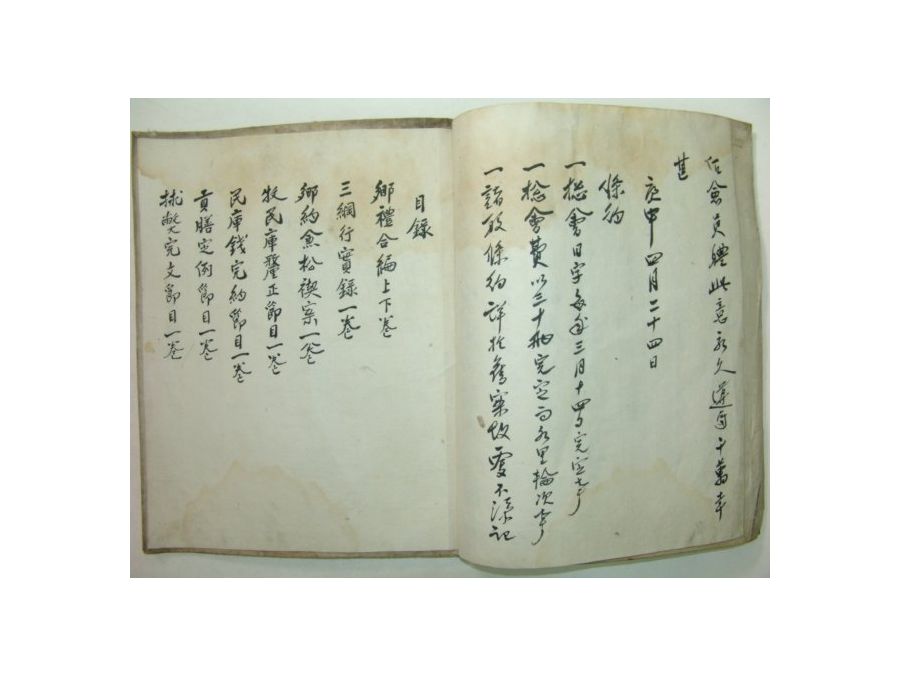 僉員體此意永久遵同千萬幸
甚
庚申四月二十四日
條約
一総會日字每年三月十四日完定事
一総會費以三十兩完定而各里輪次事
一諸般條約詳於舊案故更不添記
目録
鄉禮合編上下卷
三綱行實録一卷
鄉約兼松禊案一卷
牧民庫釐正節目一卷
民庫錢完約節目一卷
貢膳定例節目一卷
捄弊完文節目一卷